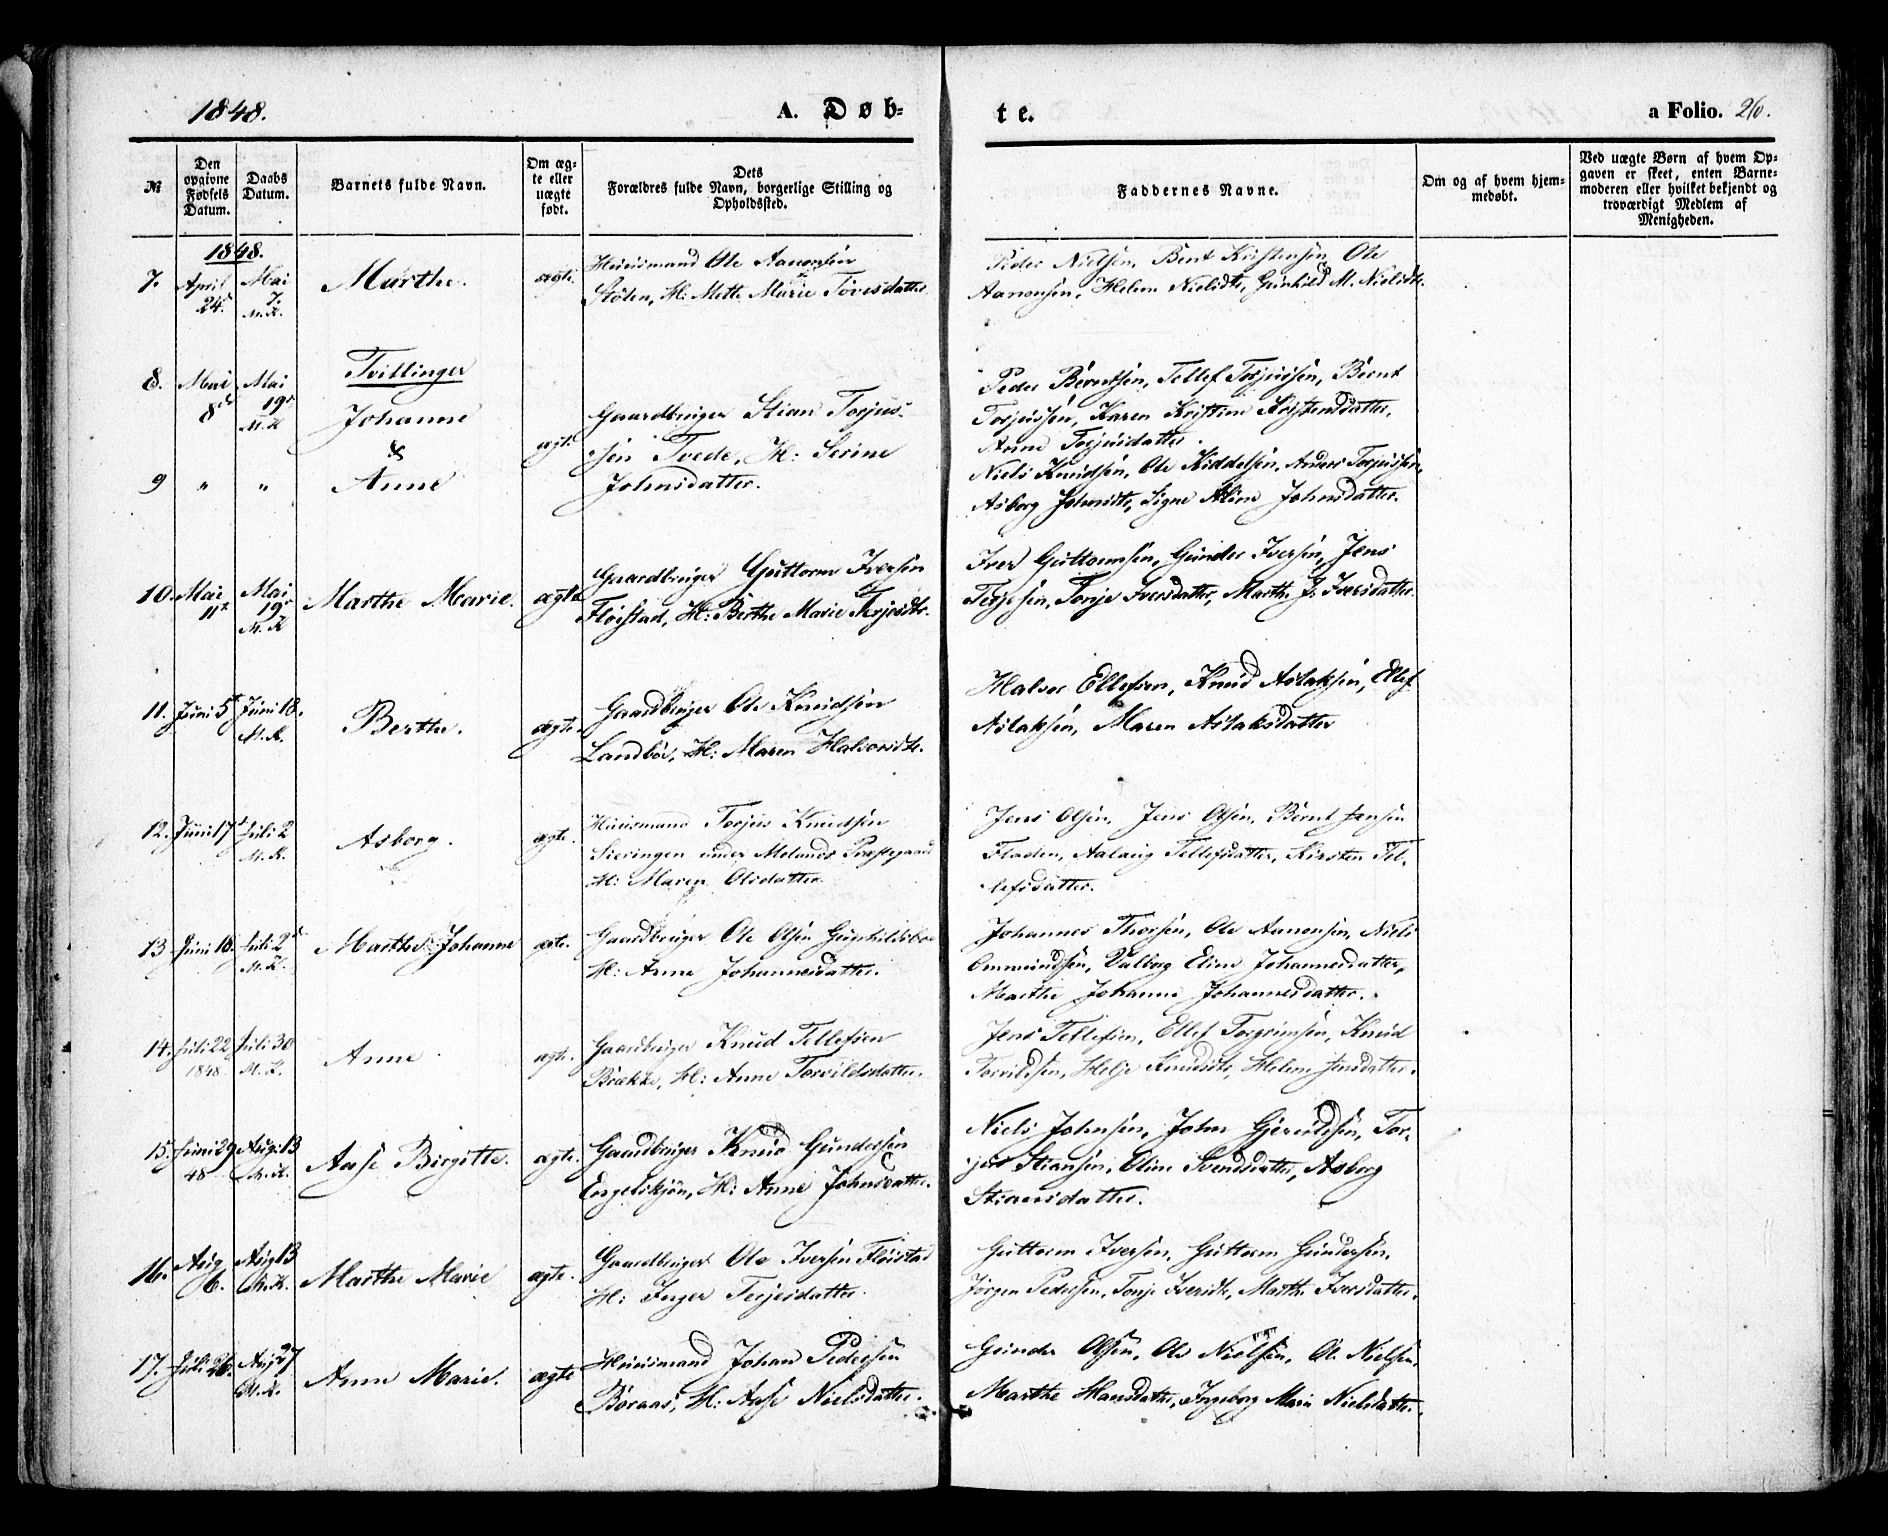 1848.
A. Døb-
te.
a Folio. 26.
№
Den opgivne Fødsels Datum.
Daabs Datum.
Barnets fulde Navn.
Om ægte eller uægte født.
Dets Forældres fulde Navn, borgerlige Stilling og Opholdssted.
Faddernes Navne.
Om og af hvem hjemmedøbt.
Ved uægte Børn af hvem Opgaven er skeet, enten Barnemoderen eller hvilket bekjendt og troværdigt Medlem af Menigheden.
1848.
7. April 24d Mai 7. M. K. Marthe. ægte.
Huusmand Ole Aanonsen
Støten, H: Mette Marie Tovesdatter
Peder Nielsen, Bent Kristensen, Ole
Aanonsen, Helene Nielsdtr, Gunhild M. Nielsdtr.
8. Mai 8d Mai 19d M. K
Tvillinger
Johanne
&
9 " " Anne ægte
Gaardbruger Stian Torjus-
sen Tvede, H: Serine
Johnsdatter.
Peder Berntsen, Tellef Torjussen, Bernt
Torjussen, Karen Kristine Kristensdatter,
Anne Torjusdatter.
Niels Knudsen, Ole Kiddelsen, Anders Torjussen,
Asborg Johnsdtr, Signe Aline Johnsdatter.
10. Mai 11te Mai 19d M. K Marthe Marie. ægte
Gaardbruger Guttorm Iversen
Fløistad, H: Berthe Marie Terjesdtr.
Iver Guttormsen, Gunder Iversen, Jens
Terjesen, Tonje Iversdatter, Marthe J. Iversdatter.
11. Juni 5t Juni 18. M. K. Berthe. ægte.
Gaardbruger Ole Knudsen
Landbøe, H: Maren Halvorsdtr.
Halvor Ellefsen, Knud Aslaksen, Ellef
Aslaksen, Maren Aslaksdatter
12. Juni 17t Juli 2 M. K. Asborg. ægte.
Huusmand Torjus Knudsen
Sieringen under Molands Præstegaard
H: Maren Olsdatter.
Jens Olsen, Jens Olsen, Bernt Jensen
Fladen, Aalaug Tellefsdatter, Kirsten Tel-
lefsdatter.
13. Juni 18. Juli 2d M. K. Marthe Johanne ægte.
Gaardbruger Ole Olsen Gunhildsboe
H: Anne Johannesdatter.
Johannes Thorsen, Ole Aanonsen, Niels
Ommundsen, Valborg Eline Johannesdatter,
Marthe Johanne Johannesdatter.
14. Juli 22 1848. Juli 30 M. K. Anne ægte.
Gaardbruger Knud Tellefsen
Brække, H: Anne Torvildsdatter.
Jens Tellefsen, Ellef Torgrimsen, Knud
Torvildsen, Helje Knudsdtr, Helene Jensdatter.
15. Juni 29 48 Aug. 13 M. K. Aase Birgitte. ægte.
Gaardbruger Knud Gundersen
Engelskjøn, H: Anne Johnsdatter.
Niels Johnsen, John Gjerulfsen, Tor-
jus Stiansen, Eline Svendsdatter, Asborg
Stiansdatter.
16. Aug 6. Aug 13 M. K. Marthe Marie ægte.
Gaardbruger Ole Iversen Fløistad
H: Inger Terjesdatter.
Guttorm Iversen, Guttorm Gundersen,
Jørgen Pedersen, Tonje Iversdtr, Marthe Iversdatter.
17. Juli 26. Aug 27 M. K. Anne Marie. ægte
Huusmand Johan Pedersen
Boraas, H: Aase Nielsdatter.
Gunder Olsen, Ole Nielsen, O. Nielsen,
Marthe Hansdatter, Ingeborg Marie Nielsdatter.